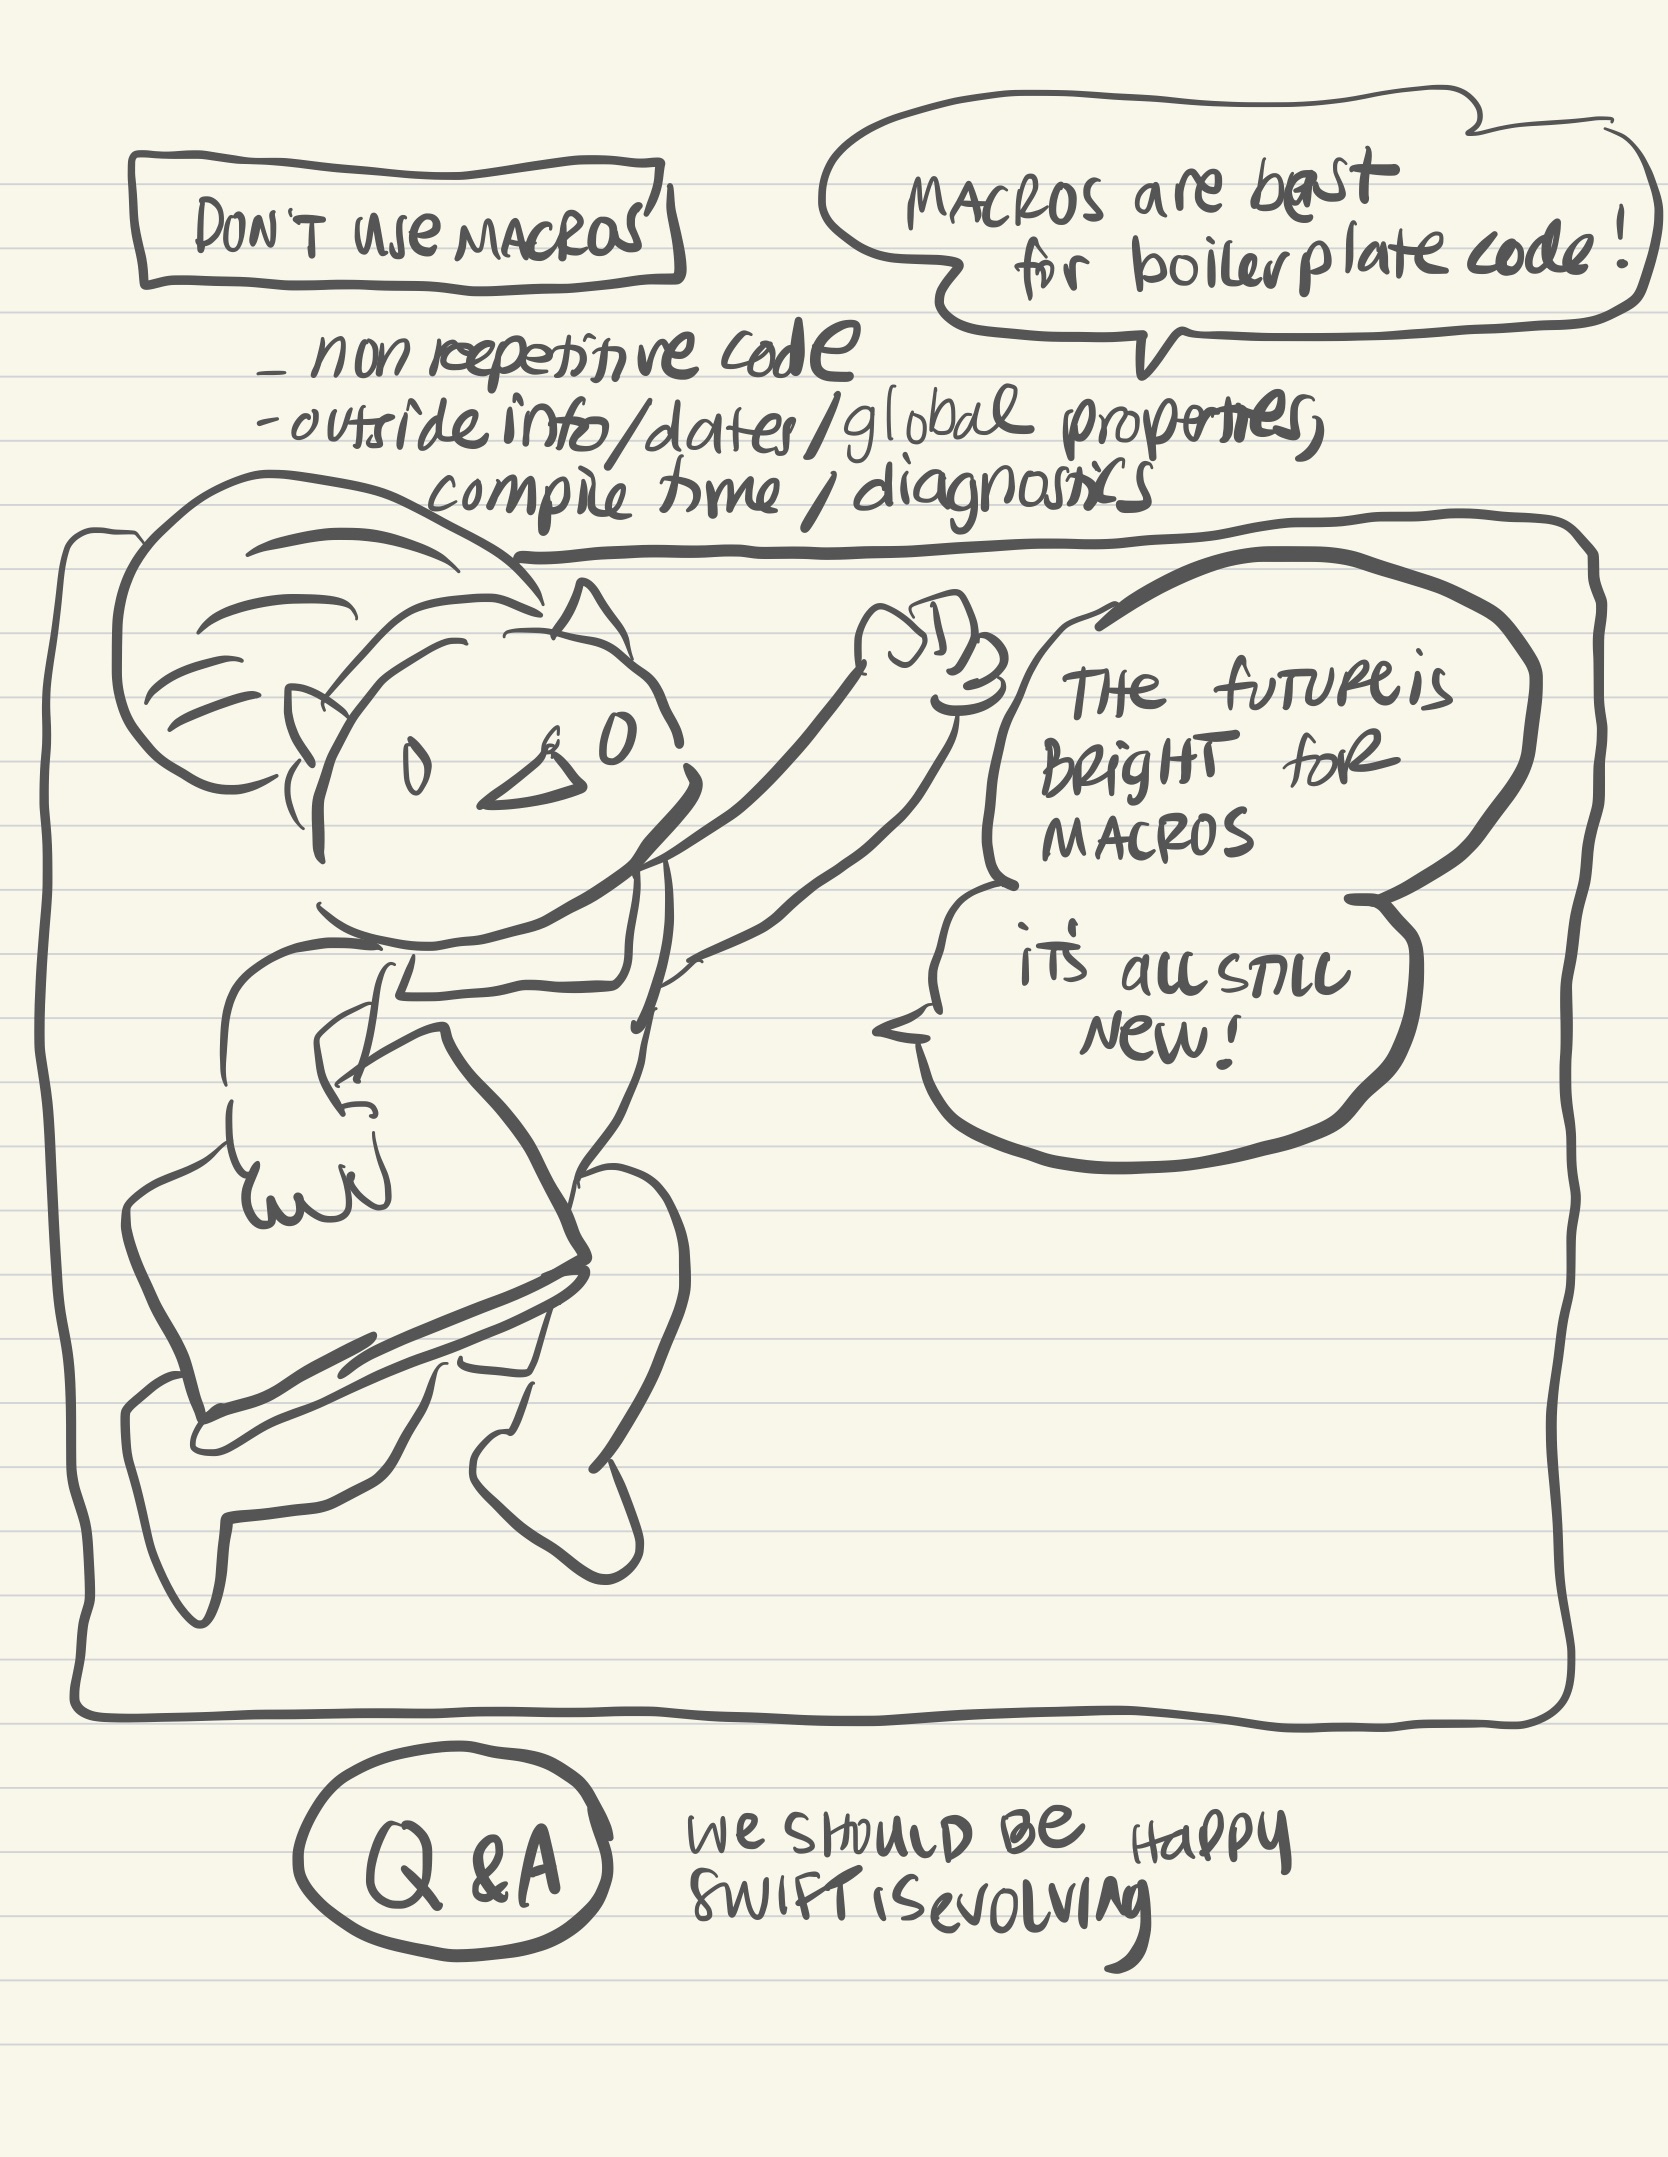 DON'T USE MACROS
MACROS are best
for boilerplate code!
- non repetitive code
- outside info/dates/global properties,
compile time/diagnostics
THE FUTURE IS
BRIGHT FOR
MACROS
IT'S ALL STILL
NEW!
Q & A
WE SHOULD BE HAPPY
SWIFT IS EVOLVING